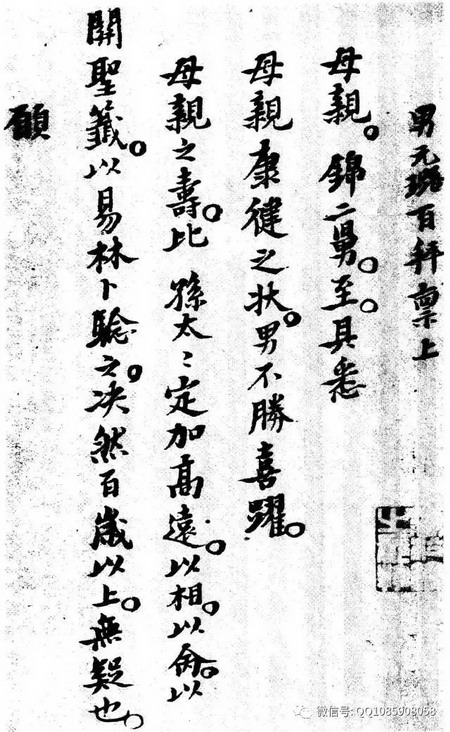 男元璐百拜稟上
母親。錦二舅。至。具悉
母親康健之狀。男不勝喜躍。
母親之壽。比 孫太〻定加高遠。以相。以命。以
關聖籤。以易林卜驗之。決然百歲以上。無疑也。
願
微信号: QQ1085908058